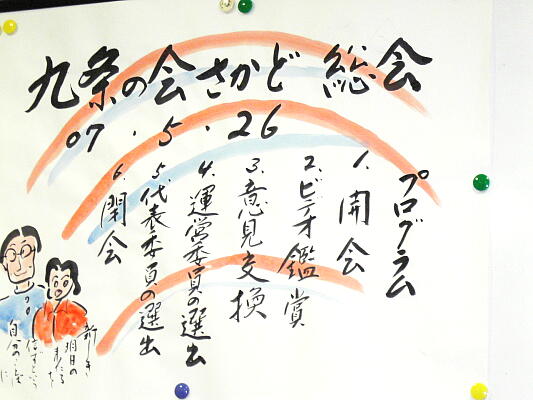 九条の会さかど 総会
07.5.26
プログラム
1. 開会
2. ビデオ鑑賞
3. 意見交換
4. 運営委員の選出
5. 代表委員の選出
6. 閉会
新しき
明日の
自分の